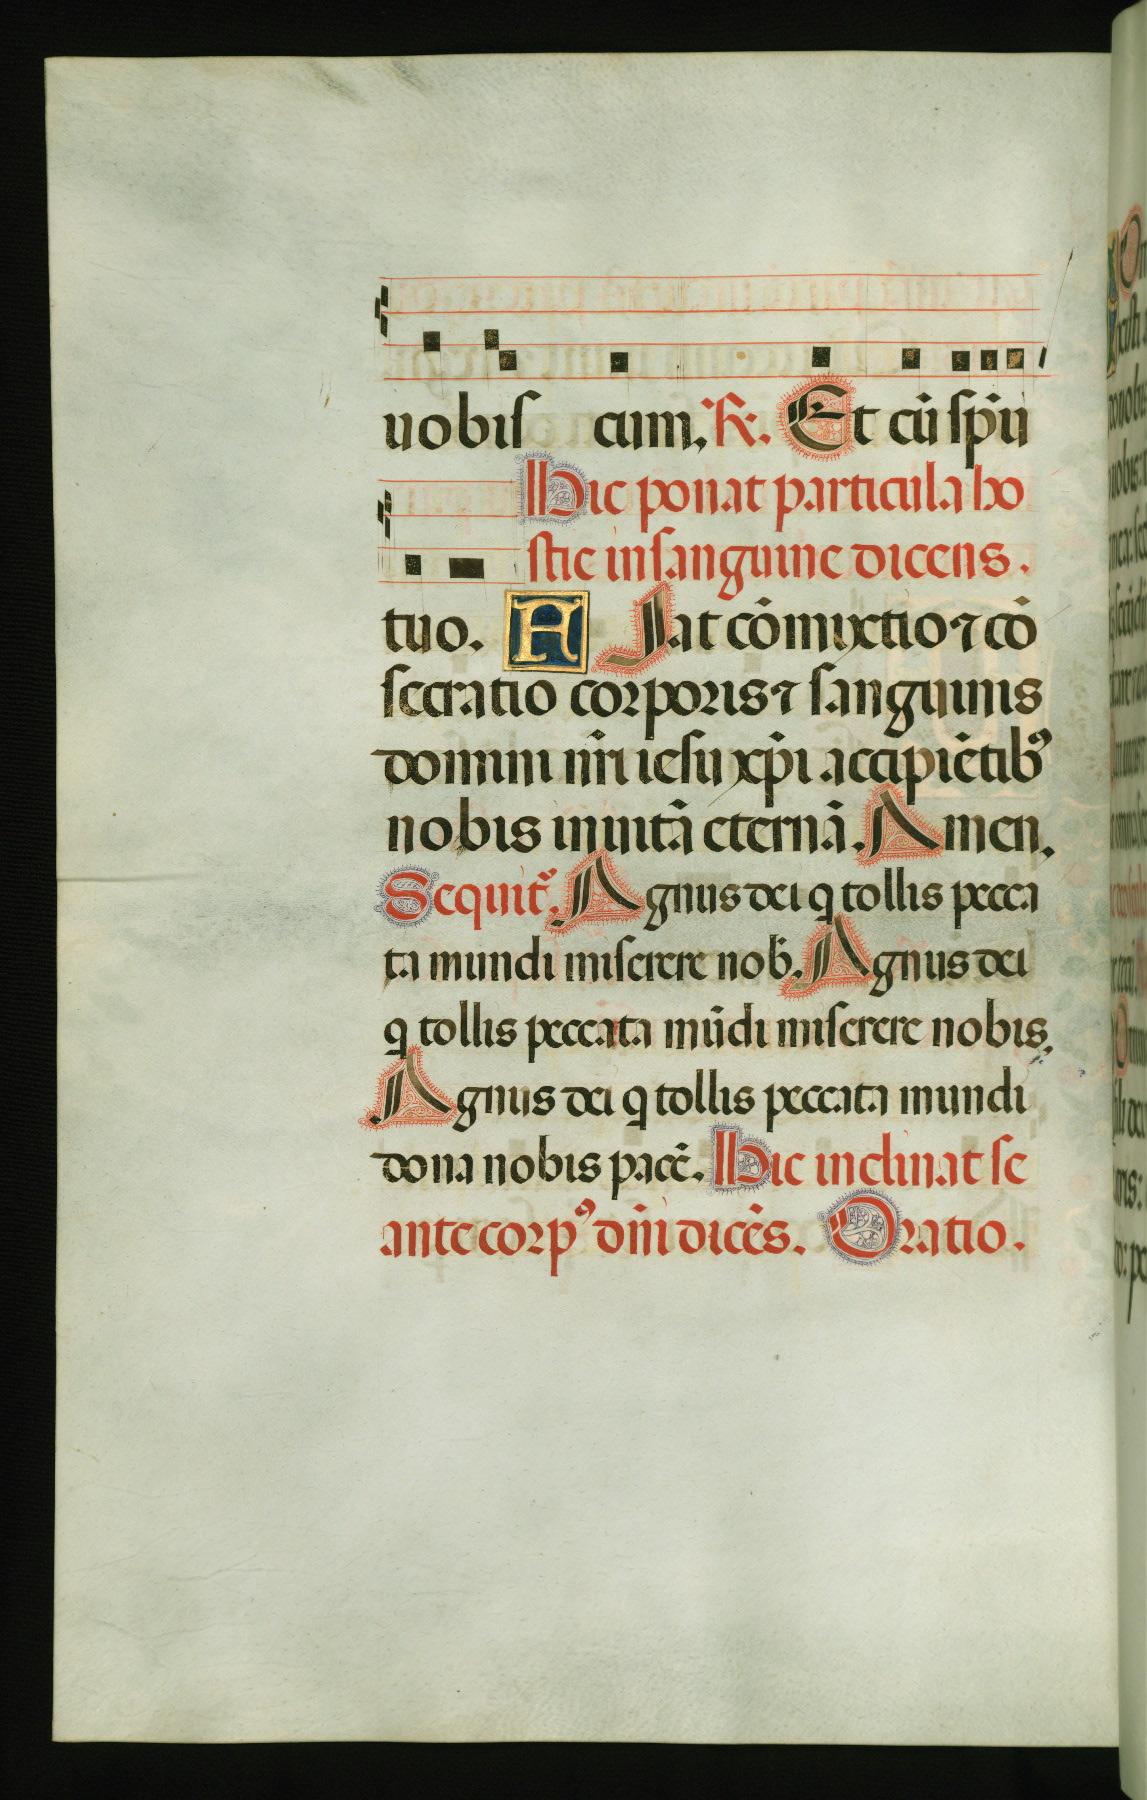 uobiſ cum. ℟. Et cū ſpū
Hic ponat particula ho
ſtie in ſanguine dicens.
tuo. H Iat cōmixtio ⁊ cō
ſecratio corporis ⁊ ſanguinis
domini nr̄i ieſu xp̄i accipiētibꝰ
nobis in uitā eternā. Amen.
Sequit᷑. Agnus dei q̄ tollis pecca
ta mundi miſerere nob̄. Agnus dei
q̄ tollis peccata mūdi miſerere nobis.
Agnus dei q̄ tollis peccata mundi
dona nobis pacē. Hic inclinat ſe
ante corpꝰ dn̄i dicēs. Oratio.